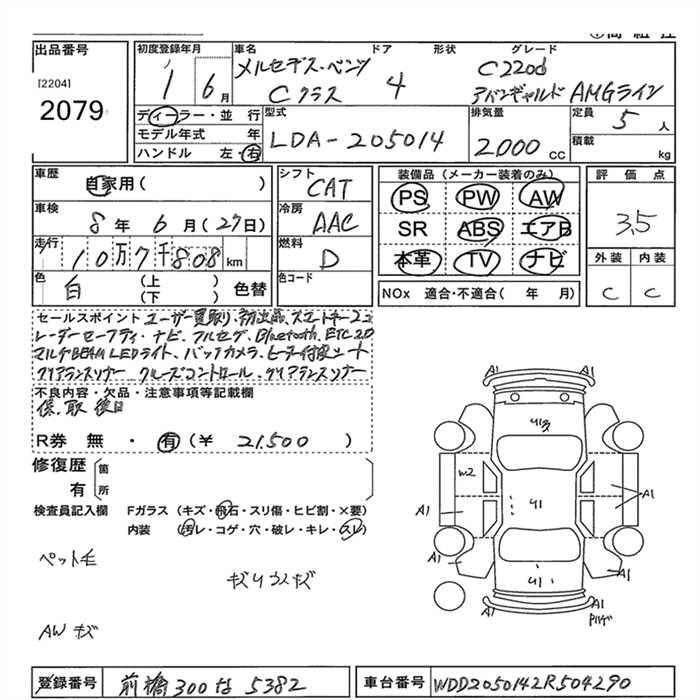 出品番号
[2204]
2079
初度登録年月
1 6月
車名
ドア
形状
グレード
メルセデス・ベンツ
Cクラス
4
C220d
アバンギャルド AMGライン
ディーラー・並 行
モデル年式 年
ハンドル 左・右
型式
LDA-205014
排気量
2000 cc
定員
5 人
積載
kg
車歴
自家用( )
車検
8 年 6 月(27日)
走行
10万7千808 km
色
白
(上 )
(下 )
色替
シフト
CAT
冷房
AAC
燃料
D
色コード
装備品(メーカー装着のみ)
PS PW AW
SR ABS エアB
本革 TV ナビ
NOx 適合・不適合( 年 月)
評 価 点
3.5
外装 内装
C C
セールスポイント ユーザー買取り、初出品、スマートキー2コ
レーダーセーフティ・ナビ、フルセグ、Bluetooth、ETC2.0
マルチBEAM LEDライト、バックカメラ、ヒーター付シート
クリアランスソナー クルーズコントロール、クリアランスソナー
不良内容・欠品・注意事項等記載欄
保、取 後日
R券 無 ・ 有(¥ 21,500 )
修復歴
有
箇
所
検査員記入欄
Fガラス(キズ・飛石・スリ傷・ヒビ割・×要)
内装 (汚レ・コゲ・穴・破レ・キレ・スレ)
ペット毛
AW キズ
A1
A1
W2
A1
A1
A1
A1
A1
A1
登録番号
前橋 300 な 5382
車台番号
WDD2050142R504290